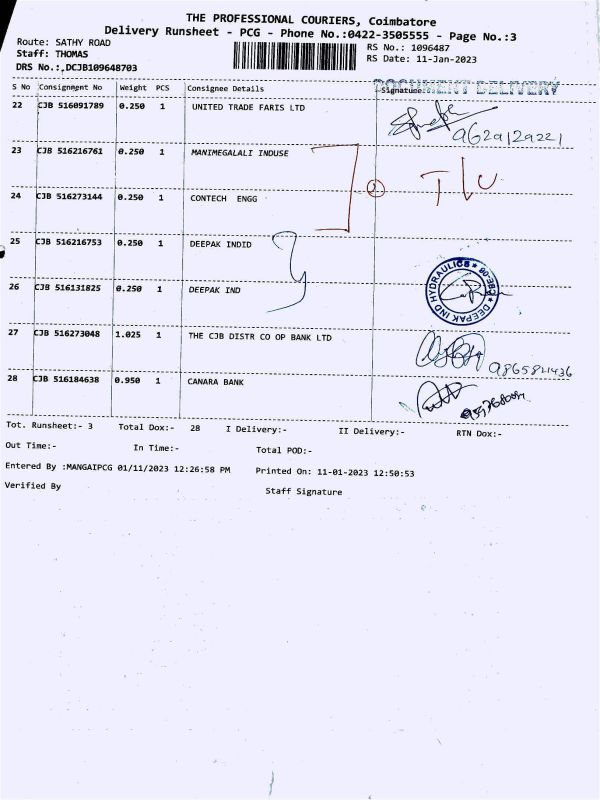 THE PROFESSIONAL COURIERS, Coimbatore
Delivery Runsheet - PCG - Phone No.:0422-3505555 - Page No.:3
Route: SATHY ROAD
Staff: THOMAS
DRS No.:,DCJB109648703
RS No.: 1096487
RS Date: 11-Jan-2023
S No Consignment No Weight PCS Consignee Details Signature:
DOCUMENT DELIVERY
22 CJB 516091789 0.250 1 UNITED TRADE FARIS LTD
23 CJB 516216761 0.250 1 MANIMEGALALI INDUSE
24 CJB 516273144 0.250 1 CONTECH ENGG
25 CJB 516216753 0.250 1 DEEPAK INDID
26 CJB 516131825 0.250 1 DEEPAK IND
DEEPAK IND HYDRAULICS ★ CBE-08 ★
27 CJB 516273048 1.025 1 THE CJB DISTR CO OP BANK LTD
28 CJB 516184638 0.950 1 CANARA BANK
Tot. Runsheet:- 3 Total Dox:- 28 I Delivery:- II Delivery:- RTN Dox:-
Out Time:- In Time:- Total POD:-
Entered By :MANGAIPCG 01/11/2023 12:26:58 PM Printed On: 11-01-2023 12:50:53
Verified By Staff Signature